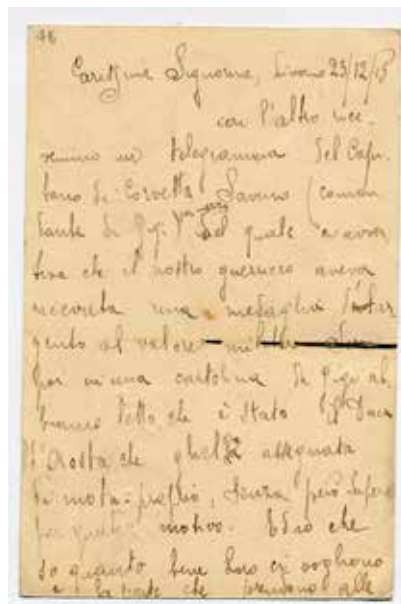 48
Carissime Signorine, Livorno 23/12/15
con l'altro rice-
vemmo un telegramma del Capi-
tano di Corvetta Savino (coman
dante di Gigi) nel quale ci avver
tiva che il nostro guerriero aveva
ricevuta una medaglia d'Ar
gento al valore
poi in una cartolina di Gigi ab
biamo letto che è stato il Duca
d'Aosta che gliel'ha assegnata
di motu-proprio, senza però sapere
per quale motivo. Ed io che
so quanto bene loro ci vogliono
e la parte che prendono alle